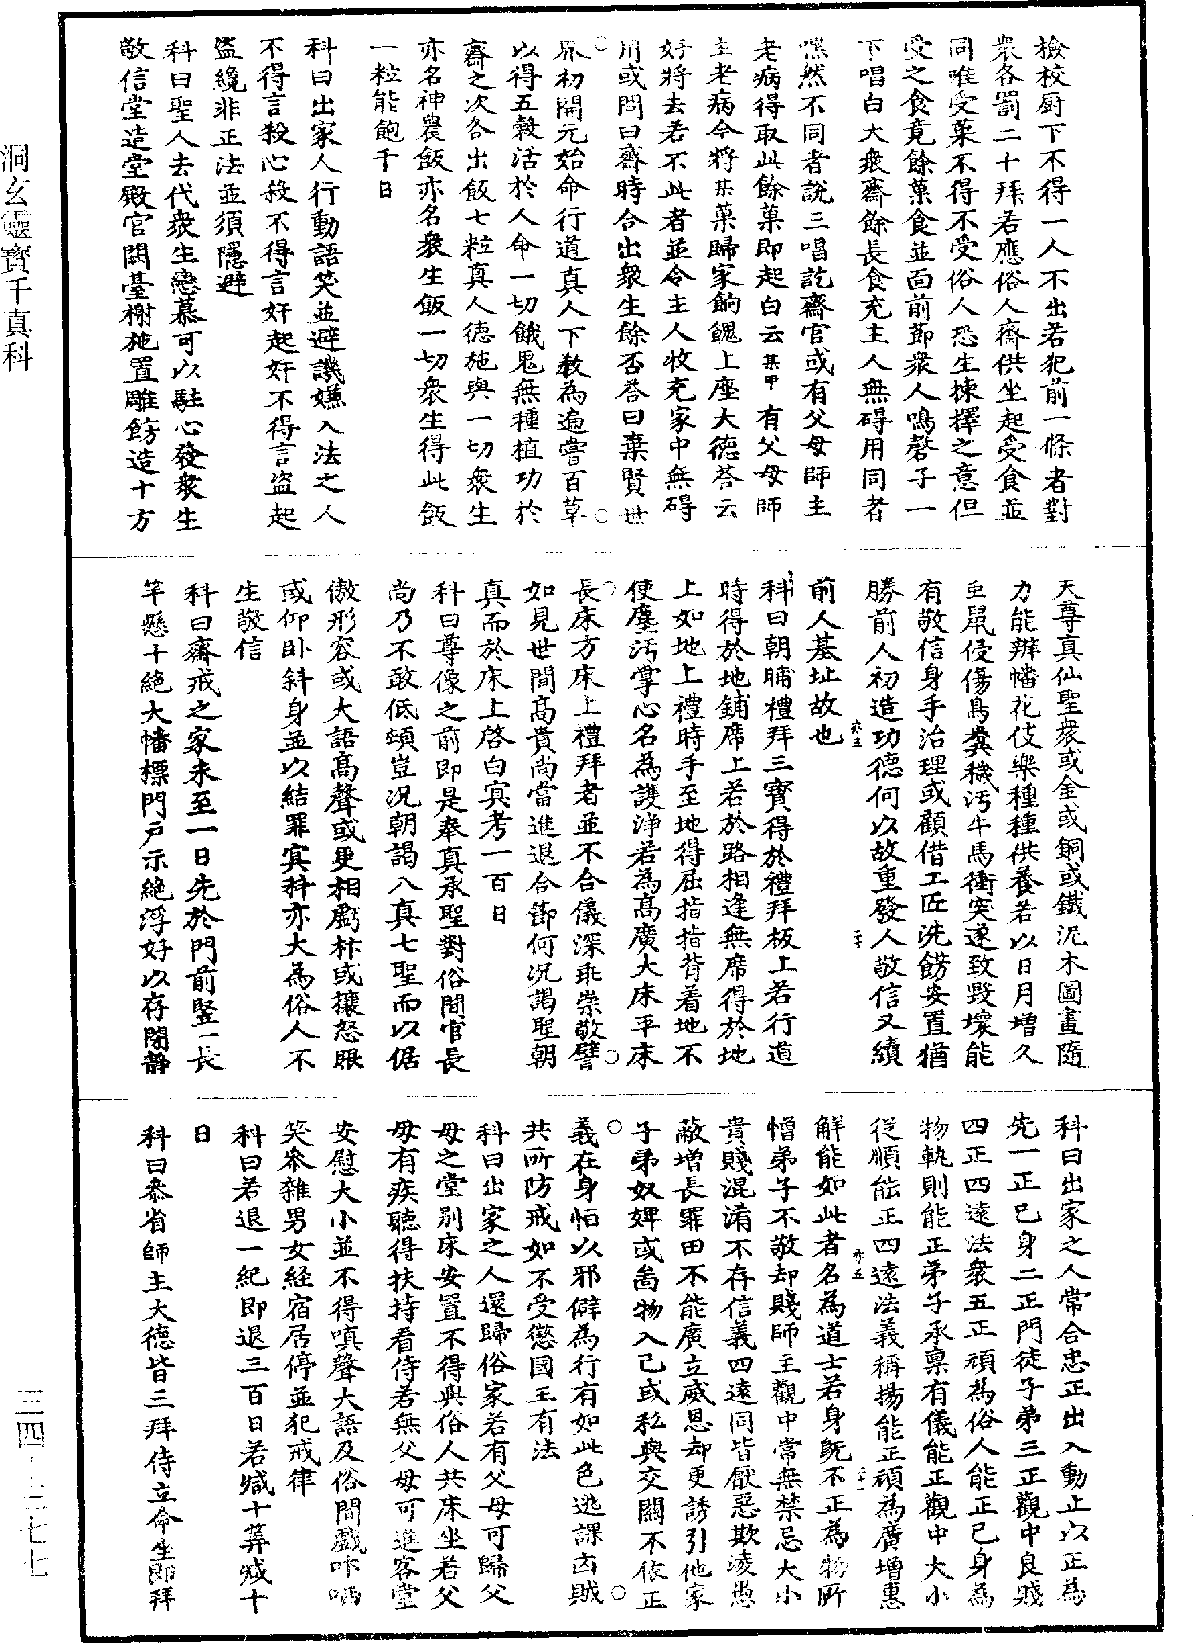 檢校厨下不得一人不出若犯前一條者對
衆各罰二十拜若應俗人齋供坐起受食並
同唯受菓不得不受俗人恐生揀擇之意但
受之食竟餘菓食並面前節衆人鳴磬子一
下唱白大衆齋餘長食充主人無碍用同者
嘿然不同者說三唱訖齋官或有父母師主
老病得取此餘菓即起白云某甲有父母師
主老病今將某菓歸家餉餽上座大德答云
好將去若不此者並令主人收充家中無碍
用或問曰齋時合出衆生餘否答曰棄賢世
界初開元始命行道真人下教為遍嘗百草
以得五穀活於人命一切餓鬼無種植功於
齋之次各出飯七粒真人德施與一切衆生
亦名神農飯亦名衆生飯一切衆生得此飯
一粒能飽千日
科曰出家人行動語笑並避譏嫌入法之人
不得言殺心殺不得言奸起奸不得言盜起
盜纔非正法並須隱避
科曰聖人去代衆生戀慕可以駐心發衆生
敬信堂造堂殿官闕臺榭施置雕餝造十方
天尊真仙聖衆或金或銅或鐵泥木圖畫隨
力能辦幡花伎樂種種供養若以日月增久
虫鼠侵傷鳥糞穢污牛馬衝突遂致毀壞能
有敬信身手治理或顧借工匠洗餝安置猶
勝前人初造功德何以故重發人敬信又續
前人基址故也
科曰朝晡禮拜三寶得於禮拜板上若行道
時得於地鋪席上若於路相逢無席得於地
上如地上禮時手至地得屈指指背着地不
使塵污掌心名為護淨若為高廣大床平床
長床方床上禮拜者並不合儀深乖崇敬譬
如見世間高貴尚當進退合節何況謁聖朝
真而於床上啓白冥考一百日
科曰尊像之前即是奉真承聖對俗間官長
尚乃不敢低頭豈況朝謁八真七聖而以倨
傲形容或大語高聲或更相戲抃或攘怒眼
或仰卧斜身並以結罪冥科亦大為俗人不
生敬信
科曰齋戒之家未至一日先於門前竪一長
竿懸十絶大幡標門戶示絶浮好以存閑靜
科曰出家之人常合忠正出入動止以正為
先一正己身二正門徒子弟三正觀中良賤
四正四遠法衆五正頑為俗人能正己身為
物軌則能正弟子承禀有儀能正觀中大小
從順能正四遠法義稱揚能正頑為廣增惠
解能如此者名為道士若身既不正為物所
憎弟子不敬却賤師主觀中常無禁忌大小
貴賤混淆不存信義四遠同皆厭惡欺淩愚
蔽增長罪田不能廣立威恩却更誘引他家
子弟奴婢或畜物入己或私與交關不依正
義在身怕以邪僻為行有如此色逃課畜賊
共所防戒如不受懲國王有法
科曰出家之人還歸俗家若有父母可歸父
母之堂別床安置不得與俗人共床坐若父
母有疾聽得扶持看侍若無父母可進客堂
安慰大小並不得嗔聲大語及俗間戲咋哂
笑參雜男女経宿居停並犯戒律
科曰若退一紀即退三百日若減十筭減十
日
科曰參省師主大德皆三拜侍立命坐即拜
洞玄靈寶千真科